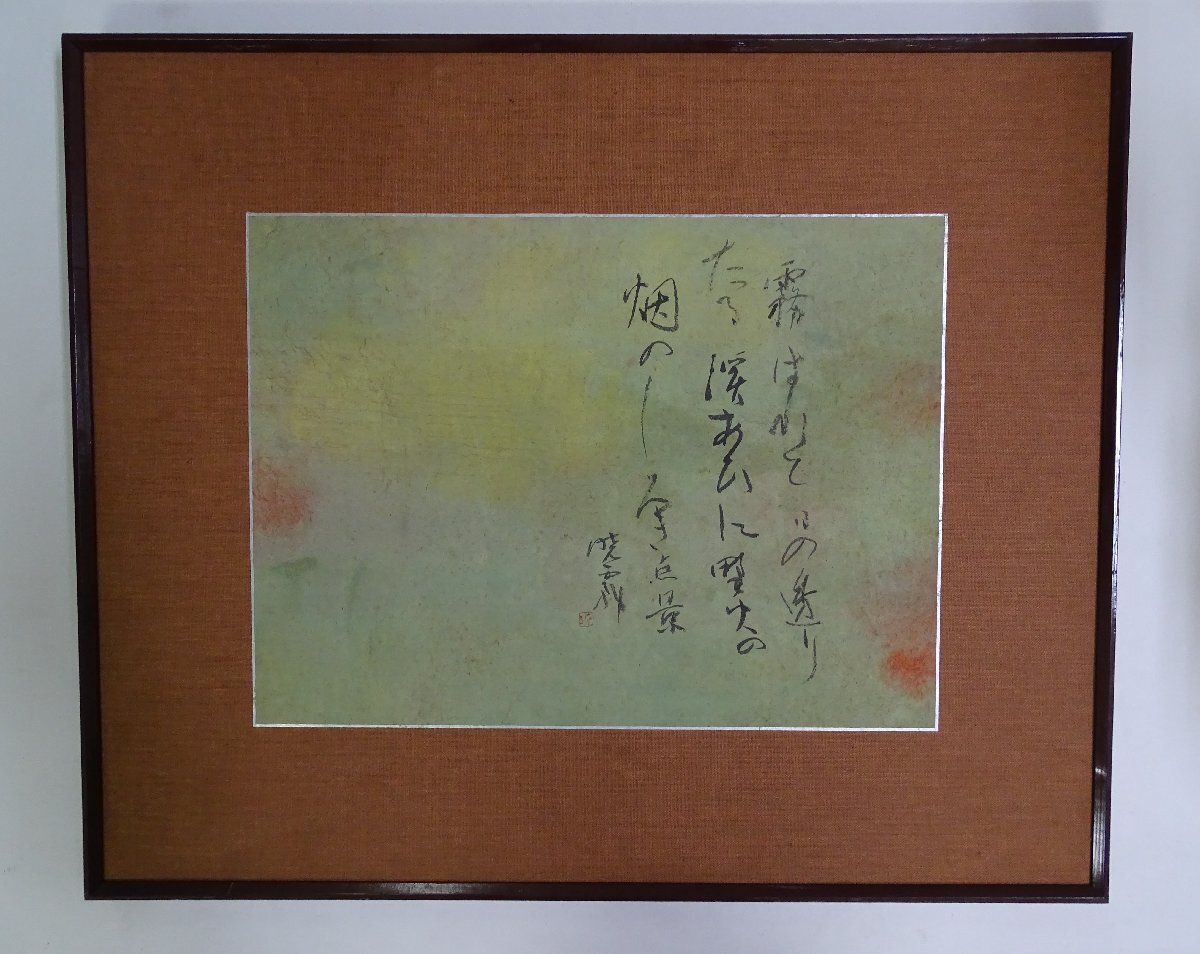 霧はれて日の透り
たる渓あひに野火の
烟のし点景